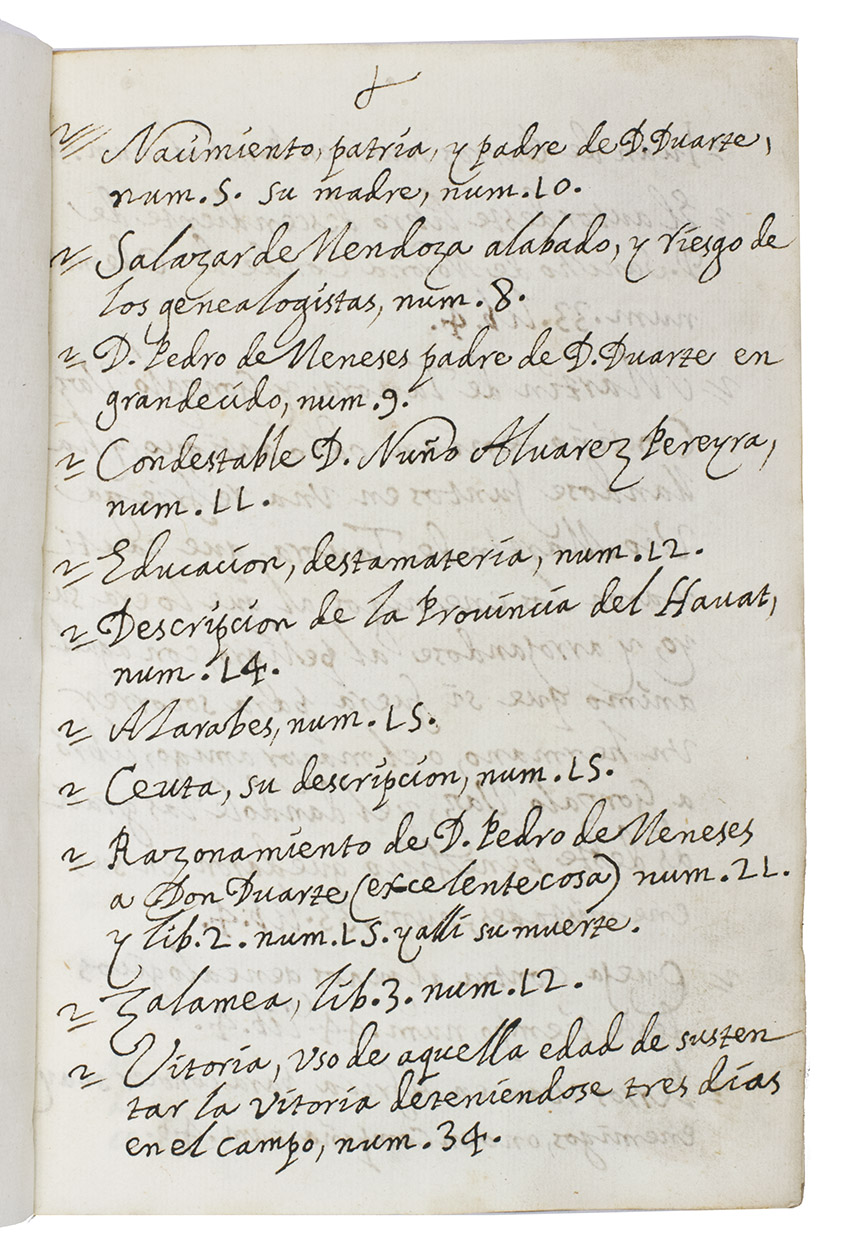 Nacimiento, patria, y padre de D. Duarte,
num. 5. su madre, num. 10.
Salazar de Mendoza alabado, y riesgo de
los genealogistas, num. 8.
D. Pedro de Meneses padre de D. Duarte en
grandecido, num. 9.
Condestable D. Nuño Alvarez Pereyra,
num. 11.
Educacion, destamateria, num. 12.
Descripcion de la Provincia del Havat,
num. 14.
Alarabes, num. 15.
Ceuta, su descripcion, num. 15.
Razonamiento de D. Pedro de Meneses
a Don Duarte (excelente cosa) num. 21.
y lib. 2. num. 15. y alli su muerte.
Zalamea, lib. 3. num. 12.
Vitoria, vso de aquella edad de susten
tar la vitoria deteniendose tres dias
en el campo, num. 34.